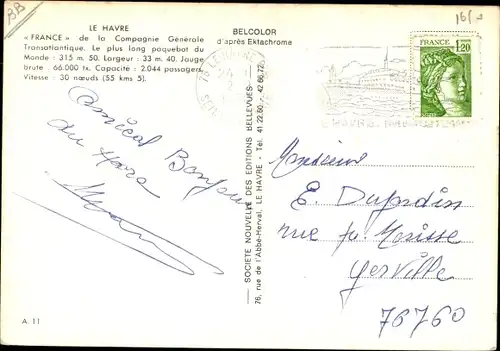 BB
16f
LE HAVRE
« FRANCE » de la Compagnie Générale
Transatlantique. Le plus long paquebot du
Monde : 315 m. 50. Largeur : 33 m. 40. Jauge
brute : 66.000 tx. Capacité : 2.044 passagers.
Vitesse : 30 nœuds (55 kms 5).
BELCOLOR
d'après Ektachrome
FRANCE
1,20
Amical Bonjour
du Havre
SOCIETE NOUVELLE DES EDITIONS BELLEVUES
76, rue de l'Abbé-Herval, LE HAVRE - Tél. 41 22.60 - 42 66.72
LE HAVRE
Monsieur
E. Dujardin
rue
Yerville
76760
A. 11